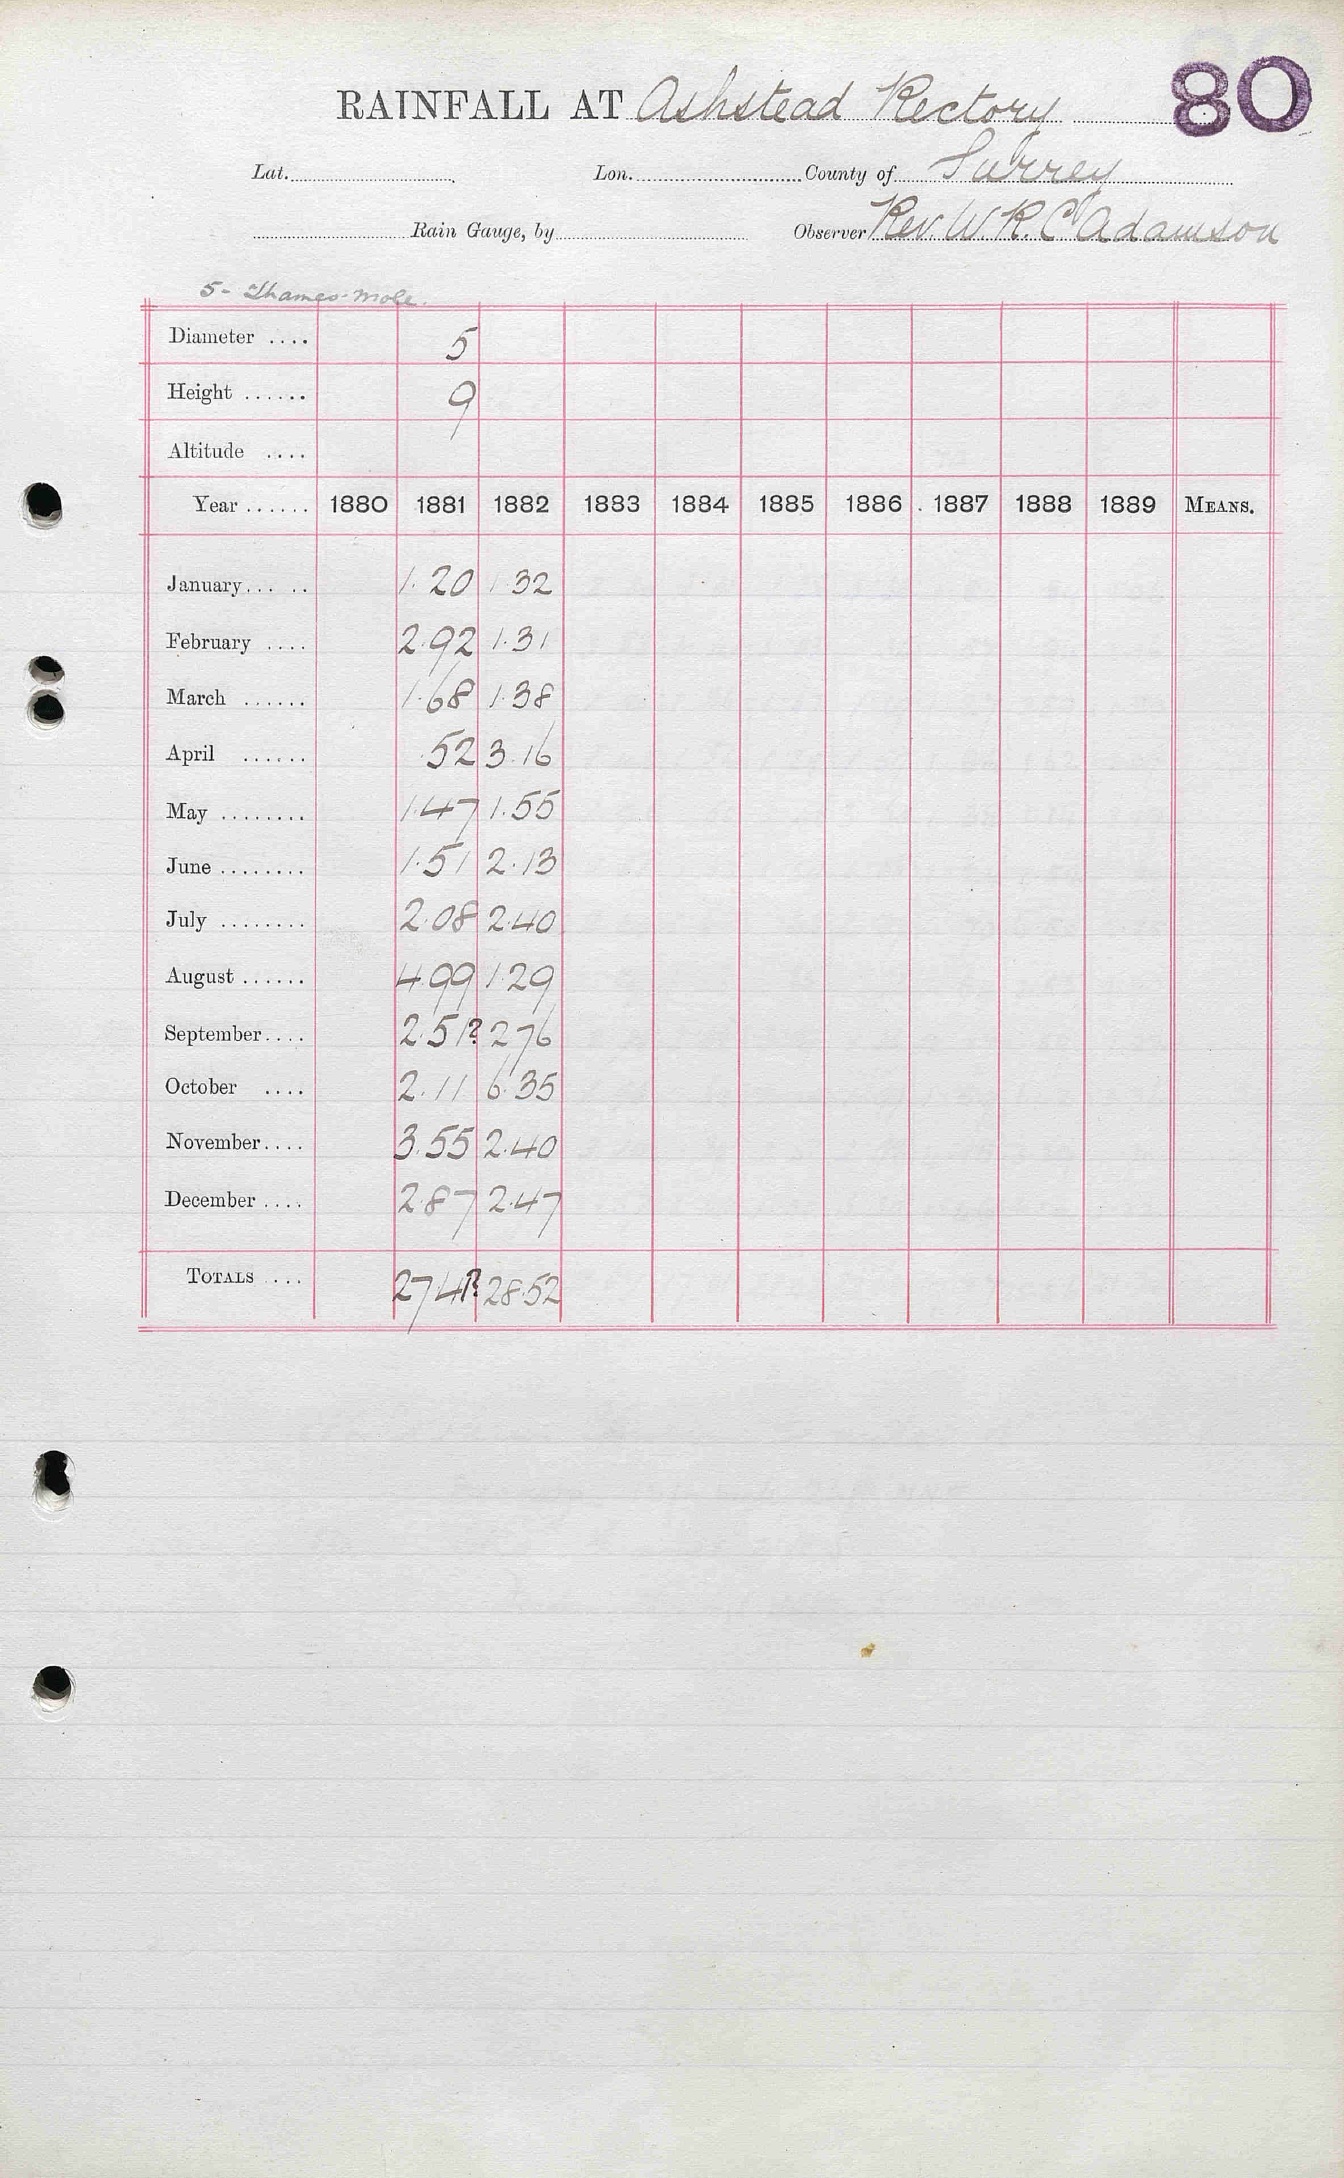 80
RAINFALL AT Ashstead Rectory
Lat. Lon. County of Surrey
Rain Gauge, by Observer Rev. W. R. C. Adamson
5 - Thames-Mole.
Diameter .... 5
Height ...... 9
Altitude ....
Year ...... 1880 1881 1882 1883 1884 1885 1886 1887 1888 1889 MEANS.
January... .. 1.20 1.32
February .... 2.92 1.31
March ...... 1.68 1.38
April ...... .52 3.16
May ........ 1.47 1.55
June ........ 1.51 2.13
July ........ 2.08 2.40
August ...... 4.99 1.29
September.... 2.51? 2.76
October .... 2.11 6.35
November.... 3.55 2.40
December .... 2.87 2.47
TOTALS .... 27.41? 28.52